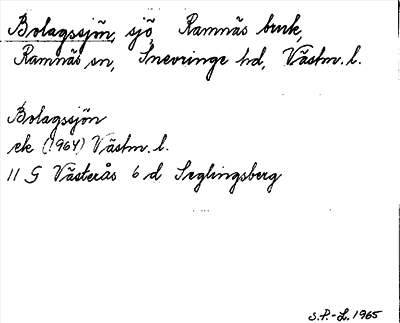 Bolagssjön, sjö, Ramnäs bruk,
Ramnäs sn, Snevringe hd, Västm. l.
Bolagssjön
ek (1964) Västm. l.
11 G Västerås 6 d Seglingsberg
S.P.-L. 1965